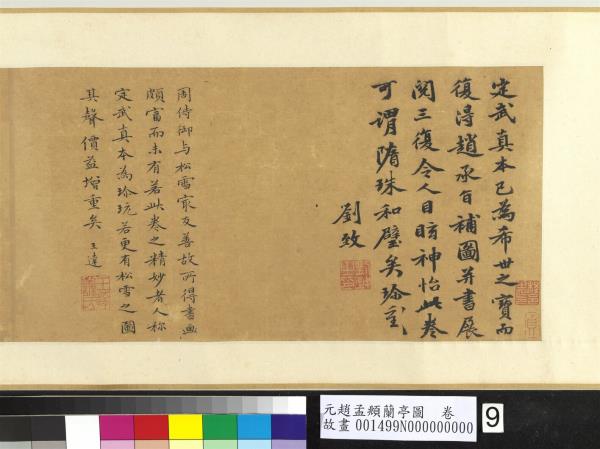 定武真本已為希世之寶而
復得趙承旨補圖并書展
閱三復令人目眩神怡此卷
可謂隋珠和璧矣珍式
劉致
周侍御与松雪寂友善故所得書画
頗富而未有若此卷之精妙者人称
定武真本為珍玩若更有松雪之圖
其聲價益增重矣 王逵
元趙孟頫蘭亭圖 卷
故畫 001499N000000000
9